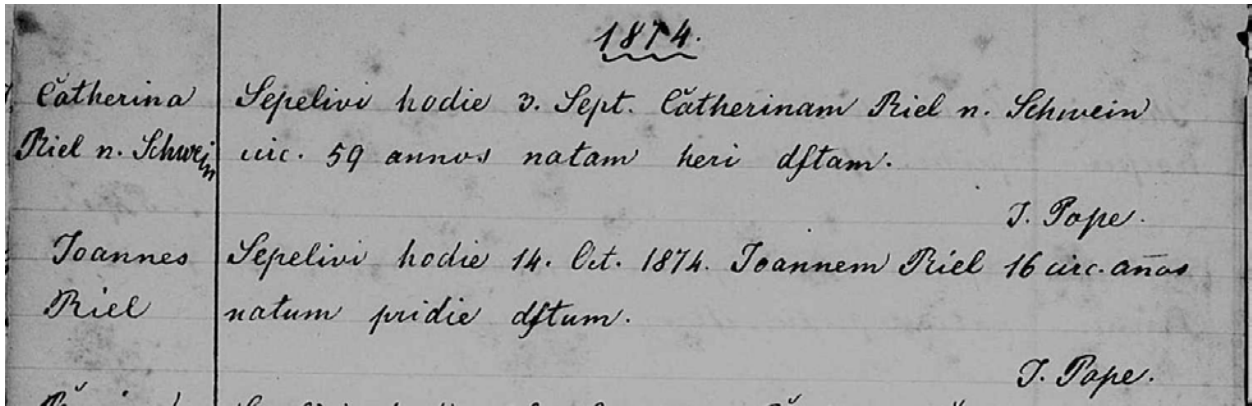 1874.
Catherina
Riel n. Schwein
Sepelivi hodie 3. Sept. Catherinam Riel n. Schwein
circ. 59 annos natam heri dftam.
J. Pope.
Joannes
Riel
Sepelivi hodie 14. Oct. 1874. Joannem Riel 16 circ. an̄os
natum pridie dftum.
J. Pope.